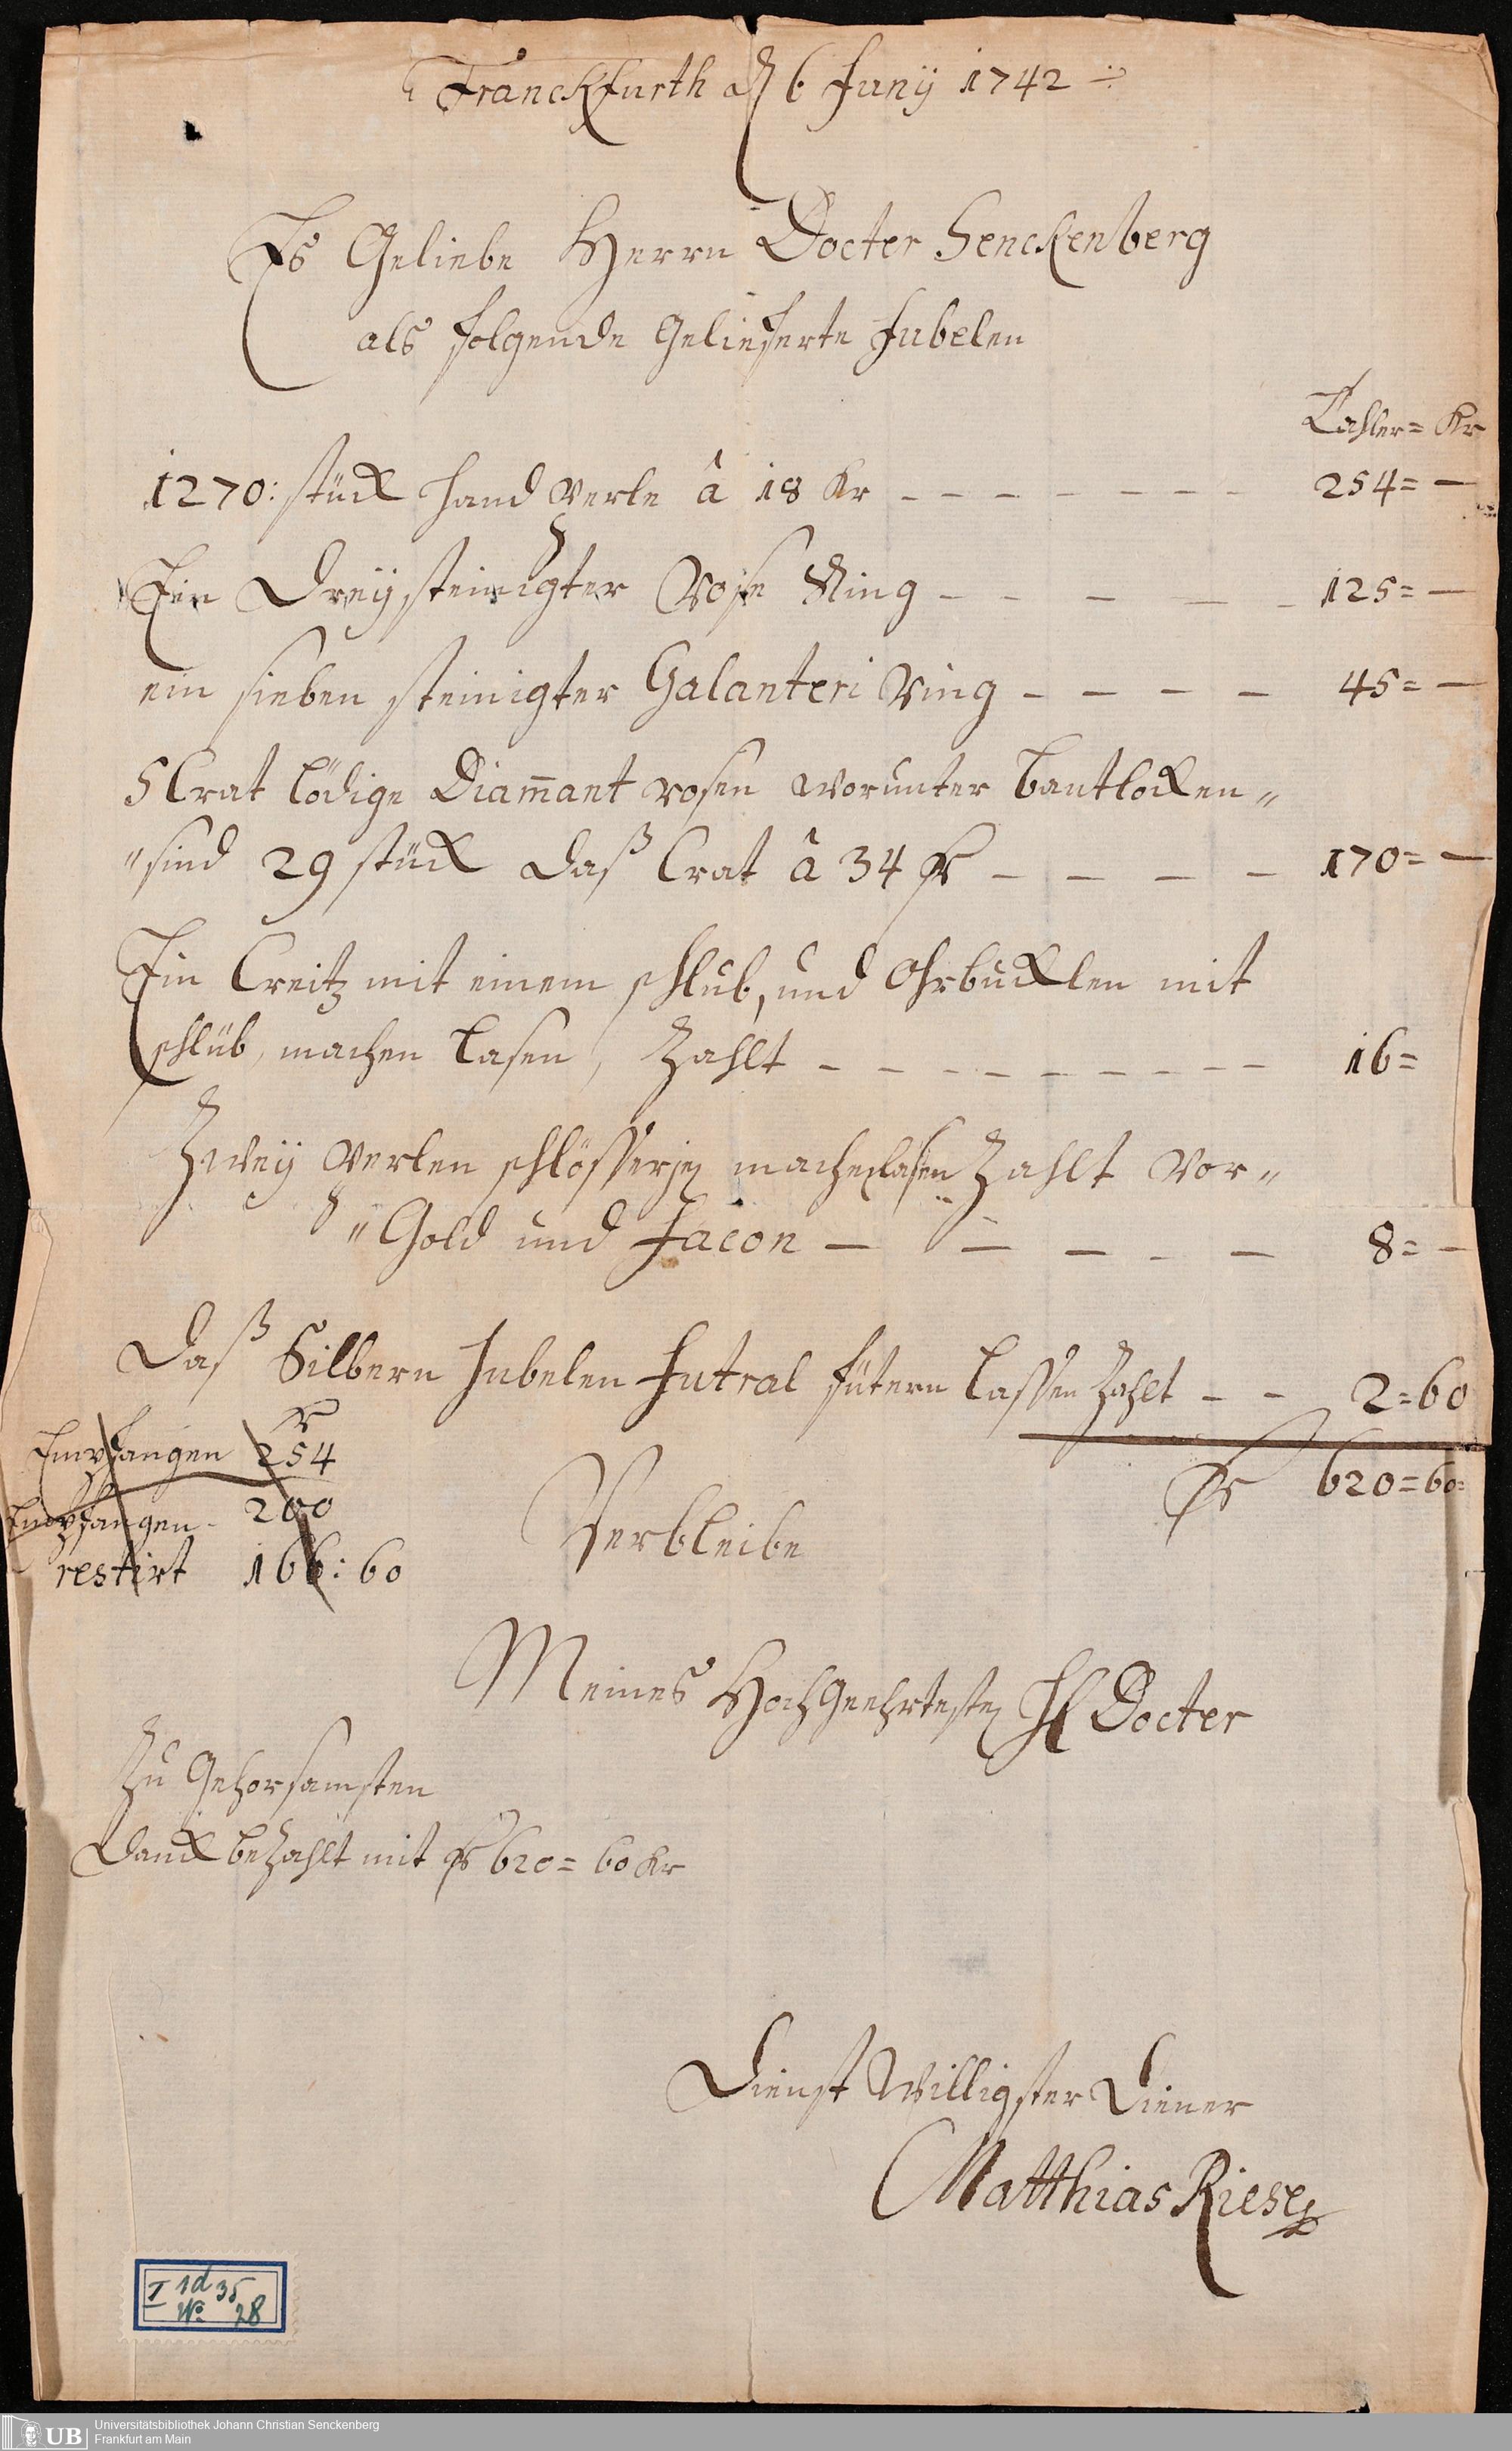 Franckfurth d 6 Juny 1742
Es Geliebe Herrn Docter Senckenberg
als folgende Gelieferte Jubelen
Tahler = Kr
1270: stück Hand perle â 18 Kr - - - - - - - - 254 = -
Ein Dreysteinigter Rose Ring - - - - - 125 = -
ein sieben steinigter Galanteri Ring - - - - 45 = -
5 Crat lödige Diam̄ant rosen worunter bantlocken "
" sind 29 stück daß Crat â 34 - - - - 170 = -
Ein Creitz mit einem schlub, und Ohrbucklen mit
schlüb, machen lasen, Zahlt - - - - - - - - - 16 =
Zwey perlen schlösserjen machen lasen Zahlt vor "
" Gold und Facon - - - - - 8 = -
Daß Silbern Jubelen Futral fütern lassen Zahlt - - 2 = 60
620 = 60 =
Empfangen 254
Empfangen - 200
restirt 166 : 60
Verbleibe
Meines HochGeehrtesten H Docter
Zu Gehorsamsten
Danck bezahlt mit 620 = 60 Kr
Dienst Willigster Diener
Matthias Riese
I 1d 35
No. 28
UB Universitätsbibliothek Johann Christian Senckenberg
Frankfurt am Main